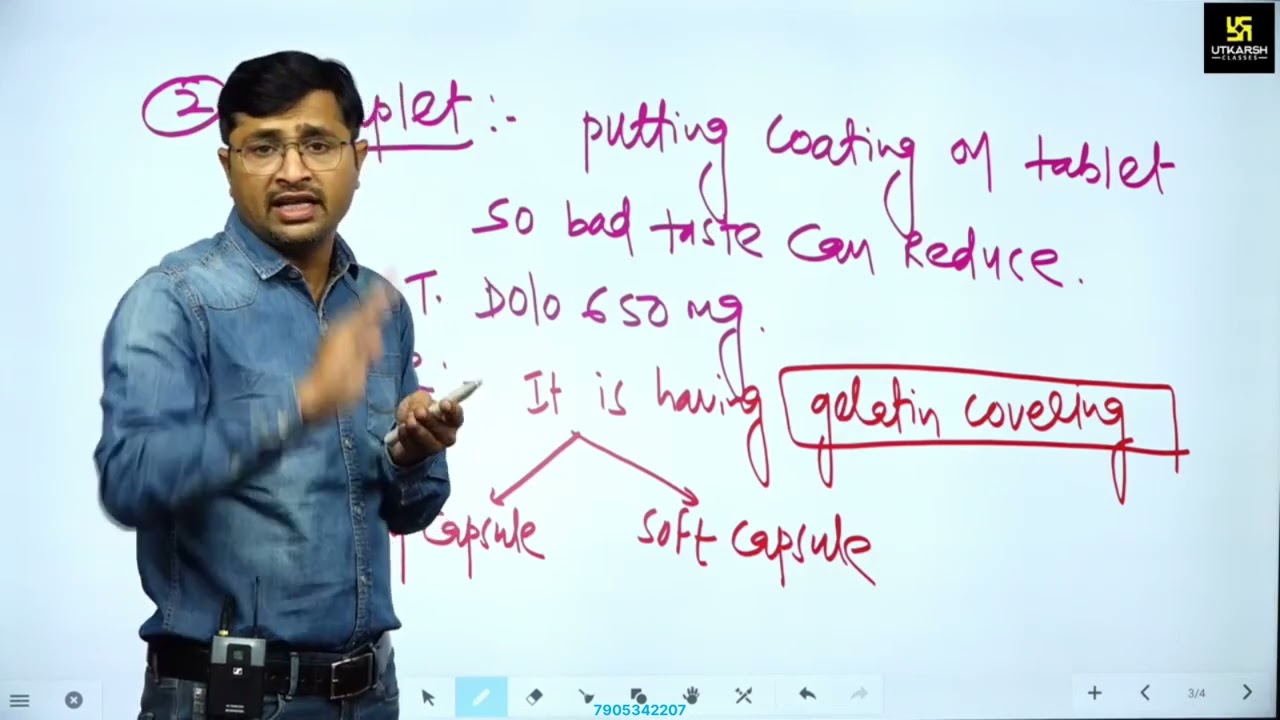 UTKARSH
CLASSES
2 plet :- putting coating of tablet
so bad taste can reduce.
T. Dolo 650 mg.
It is having gelatin covering
capsule soft capsule
3/4
7905342207